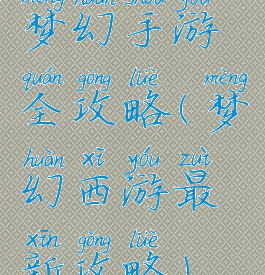 mèng huàn shǒu yóu
梦幻手游
quán gōng lüè mèng
全攻略(梦
huàn xī yóu zuì
幻西游最
xīn gōng lüè
新攻略)